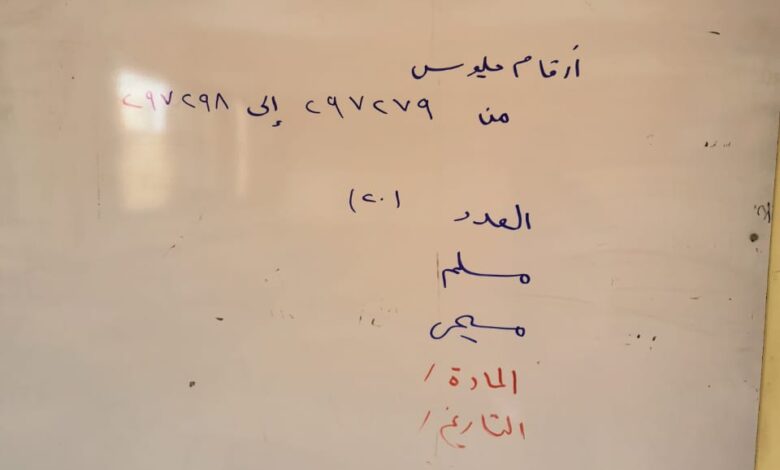 أرقام جلوس
من ٢٩٧٢٧٩ إلى ٢٩٧٢٩٨
العدد (٢٠)
مسلم
مسيحى
المادة /
التاريخ /